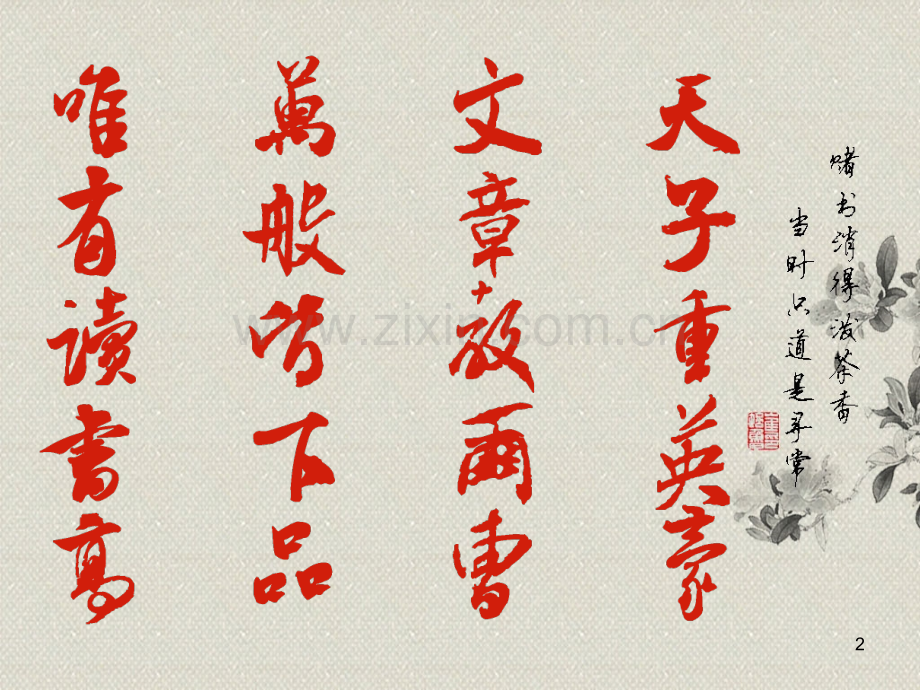 賭书消得泼茶香
当时只道是寻常
天子重英豪
文章教爾曹
萬般皆下品
唯有讀書高
www.zixin.com.cn
2